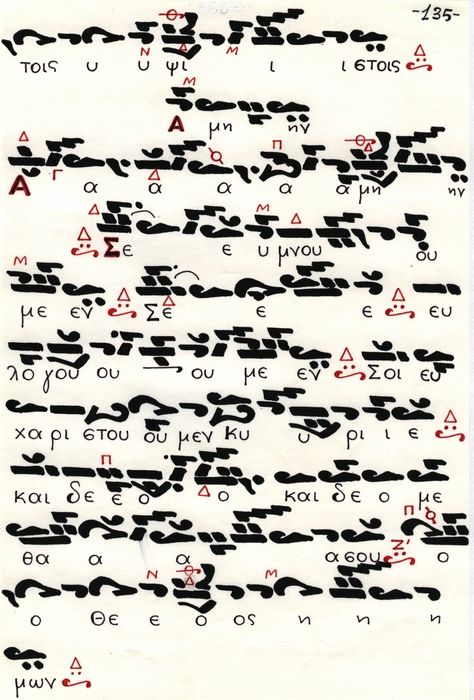 -135-
τοις υ υ ψι ι ι στοις
Α μη ην
Α α α α α α μη ην
Σε ε υ μνου ου
με εν Σε ε ε ευ
λο γου ου ου με εν Σοι ευ
χαρι στου ου μεν Κυ υ ρι ι ε
και δε ε ο ο και δε ο με
θα α α α σου ο
ο Θε ε ο ος η η η
μων